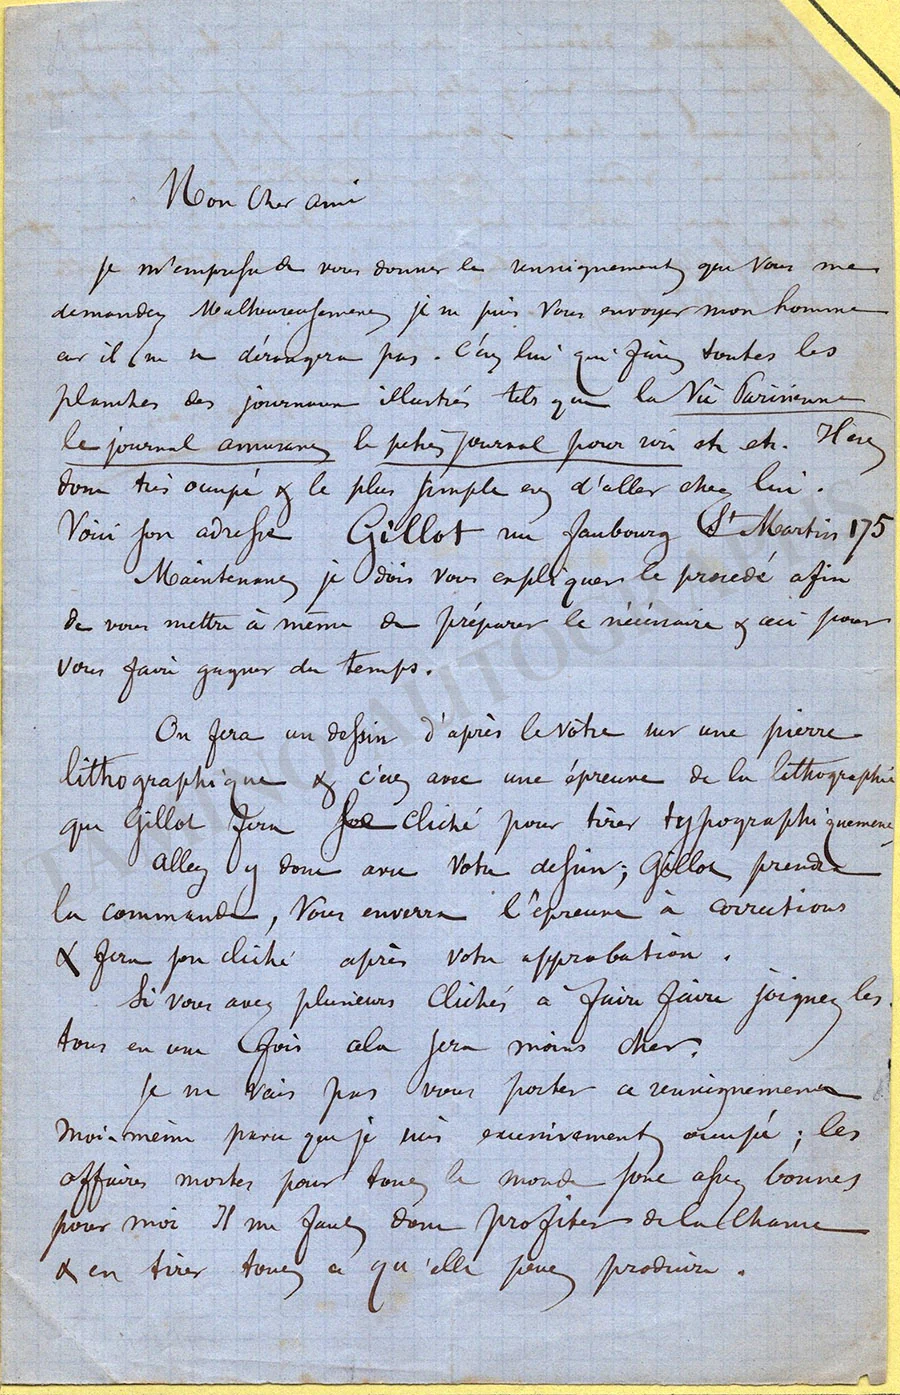 Mon cher ami
Je m'empresse de vous donner le renseignement que vous me
demandez Malheureusement je ne puis vous envoyer mon homme
car il ne se dérangera pas. C'est lui qui fait toutes les
planches des journaux illustrés tels que la Vie Parisienne
le journal amusant le petit journal pour rire etc etc. Il est
donc très occupé & le plus simple est d'aller chez lui.
Voici son adresse Gillot rue faubourg St Martin 175
Maintenant je dois vous expliquer le procédé afin
de vous mettre à même de préparer le nécessaire & ceci pour
vous faire gagner du temps.
On fera un dessin d'après le vôtre sur une pierre
lithographique & c'est avec une épreuve de la lithographie
que Gillot fera son cliché pour tirer typographiquement
allez y donc avec votre dessin; Gillot prendra
la commande, vous enverra l'épreuve à corrections
& fera son cliché après votre approbation.
Si vous avez plusieurs clichés à faire faire joignez les
tous en une fois cela sera moins cher.
Je ne vais pas vous porter ce renseignement
moi-même parce que je suis excessivement occupé; les
affaires mortes pour tout le monde sont assez bonnes
pour moi Il me faut donc profiter de la chance
& en tirer tout ce qu'elle peut produire.
TAMINO AUTOGRAPHS